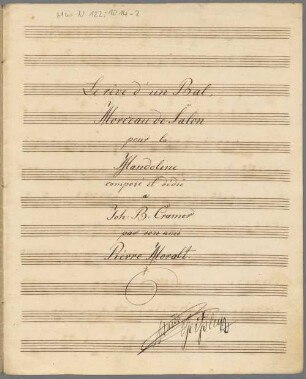 Le rève d'un Bal.
Morceau de Salon
pour la
Mandoline
composé et dédié
a
Joh. B. Cramer
par son ami
Pierre Moralt